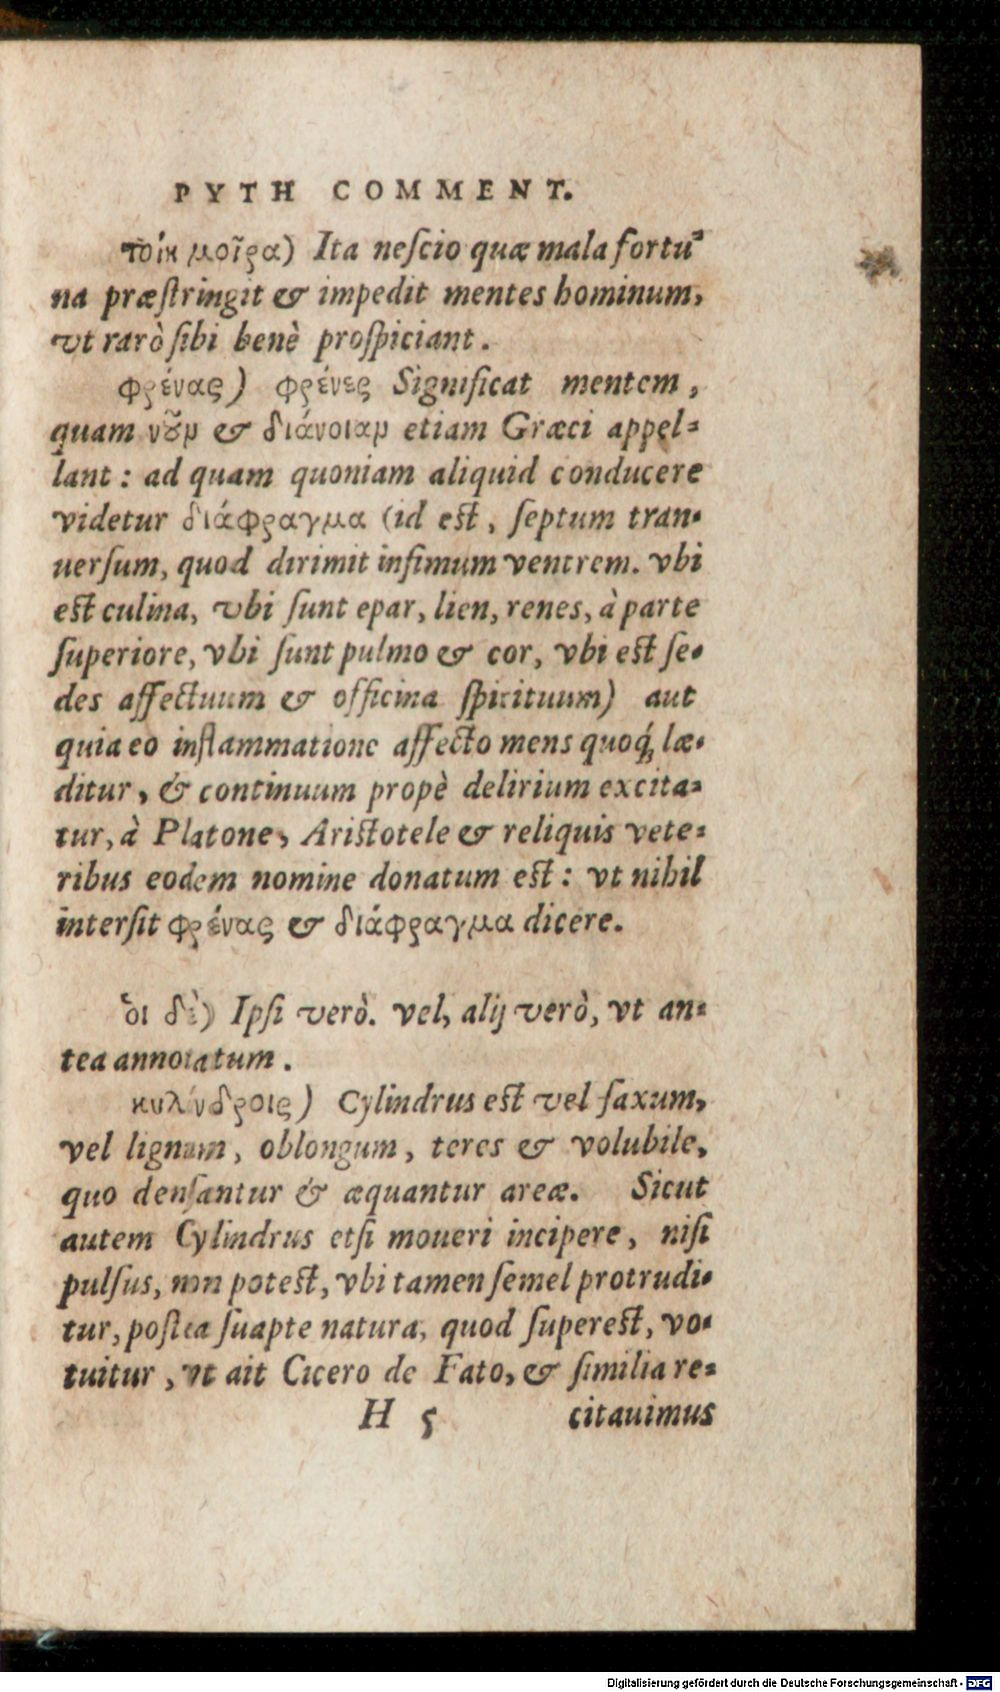 PYTH COMMENT.
τοίη μοῖρα) Ita neſcio quæ mala fortu⸗
na præſtringit & impedit mentes hominum,
vt rarò ſibi benè proſpiciant.
φρένας) φρένες Significat mentem,
quam νοῦν & διάνοιαν etiam Græci appel⸗
lant: ad quam quoniam aliquid conducere
videtur διάφραγμα (id eſt, ſeptum tran⸗
uerſum, quod dirimit infimum ventrem. vbi
eſt culina, vbi ſunt epar, lien, renes, à parte
ſuperiore, vbi ſunt pulmo & cor, vbi eſt ſe⸗
des affectuum & officina ſpirituum) aut
quia eo inflammatione affecto mens quoq́; læ⸗
ditur, & continuum propè delirium excita⸗
tur, à Platone, Ariſtotele & reliquis vete⸗
ribus eodem nomine donatum eſt: vt nihil
interſit φρένας & διάφραγμα dicere.
ὃι δὲ) Ipſi verò. vel, alij verò, vt an⸗
tea annotatum.
κυλίνδροις) Cylindrus eſt vel ſaxum,
vel lignum, oblongum, teres & volubile,
quo denſantur & æquantur areæ. Sicut
autem Cylindrus etſi moueri incipere, niſi
pulſus, non poteſt, vbi tamen ſemel protrudi⸗
tur, poſtea ſuapte natura, quod ſupereſt, vo⸗
tuitur, vt ait Cicero de Fato, & ſimilia re⸗
H 5 citauimus
Digitalisierung gefördert durch die Deutsche Forschungsgemeinschaft - DFG